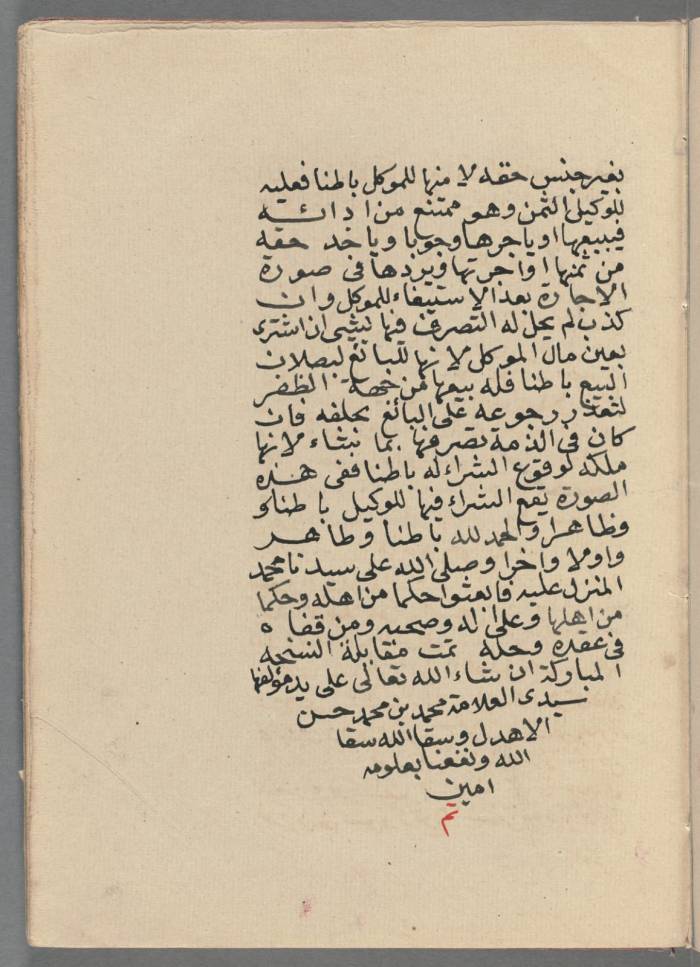 بغير جنس حقه لا منها للموكل باطنا فعليه
للوكيل الثمن وهو ممتنع من ادائه
فيبيعها او ياجرها وجوبا وياخد حقه
من ثمنها او اجرتها ويردها فى صورة
الاجارة بعد الاستيفاء للموكل وان
كذب لم يحل له التصرف فيها بشى ان اشترى
بعين مال الموكل لانها للبائع لبطلان
البيع باطنا فله بيعها من جهة الظفر
لتعذر رجوعه على البائع بحلفه فان
كان فى الذمة تصرف فيها بما شاء لانها
ملكه لوقوع الشراء له باطنا ففى هذه
الصورة يقع الشراء فيها للوكيل باطنا
وظاهرا والحمد لله باطنا وظاهر
واولا واخرا وصلى الله على سيدنا محمد
المنزل عليه فابعثوا حكما من اهله وحكما
من اهلها وعلى اله وصحبه ومن قضاه
فى عقده وحله تمت مقابلة النسخه
المباركة ان شاء الله تعالى على يد مؤلفها
سيدى العلامة محمد بن محمد حسن
الاهدل وسقا الله سقا
الله ونفعنا بعلومه
امين
تم